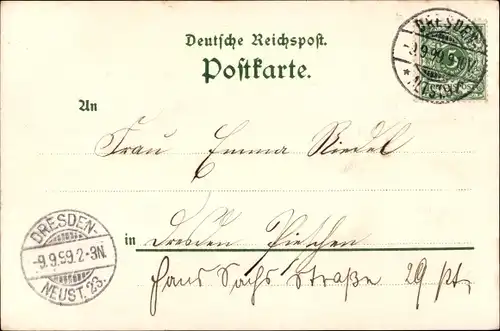 Deutsche Reichspost.
Postkarte.
DRESDEN-
9.9.99.
NEUST.
An
Frau Emma Riedel
in Dresden Pieschen
Hans Sachs Straße 29 pt.
DRESDEN-
-9.9.99.2-3N.
NEUST.23.